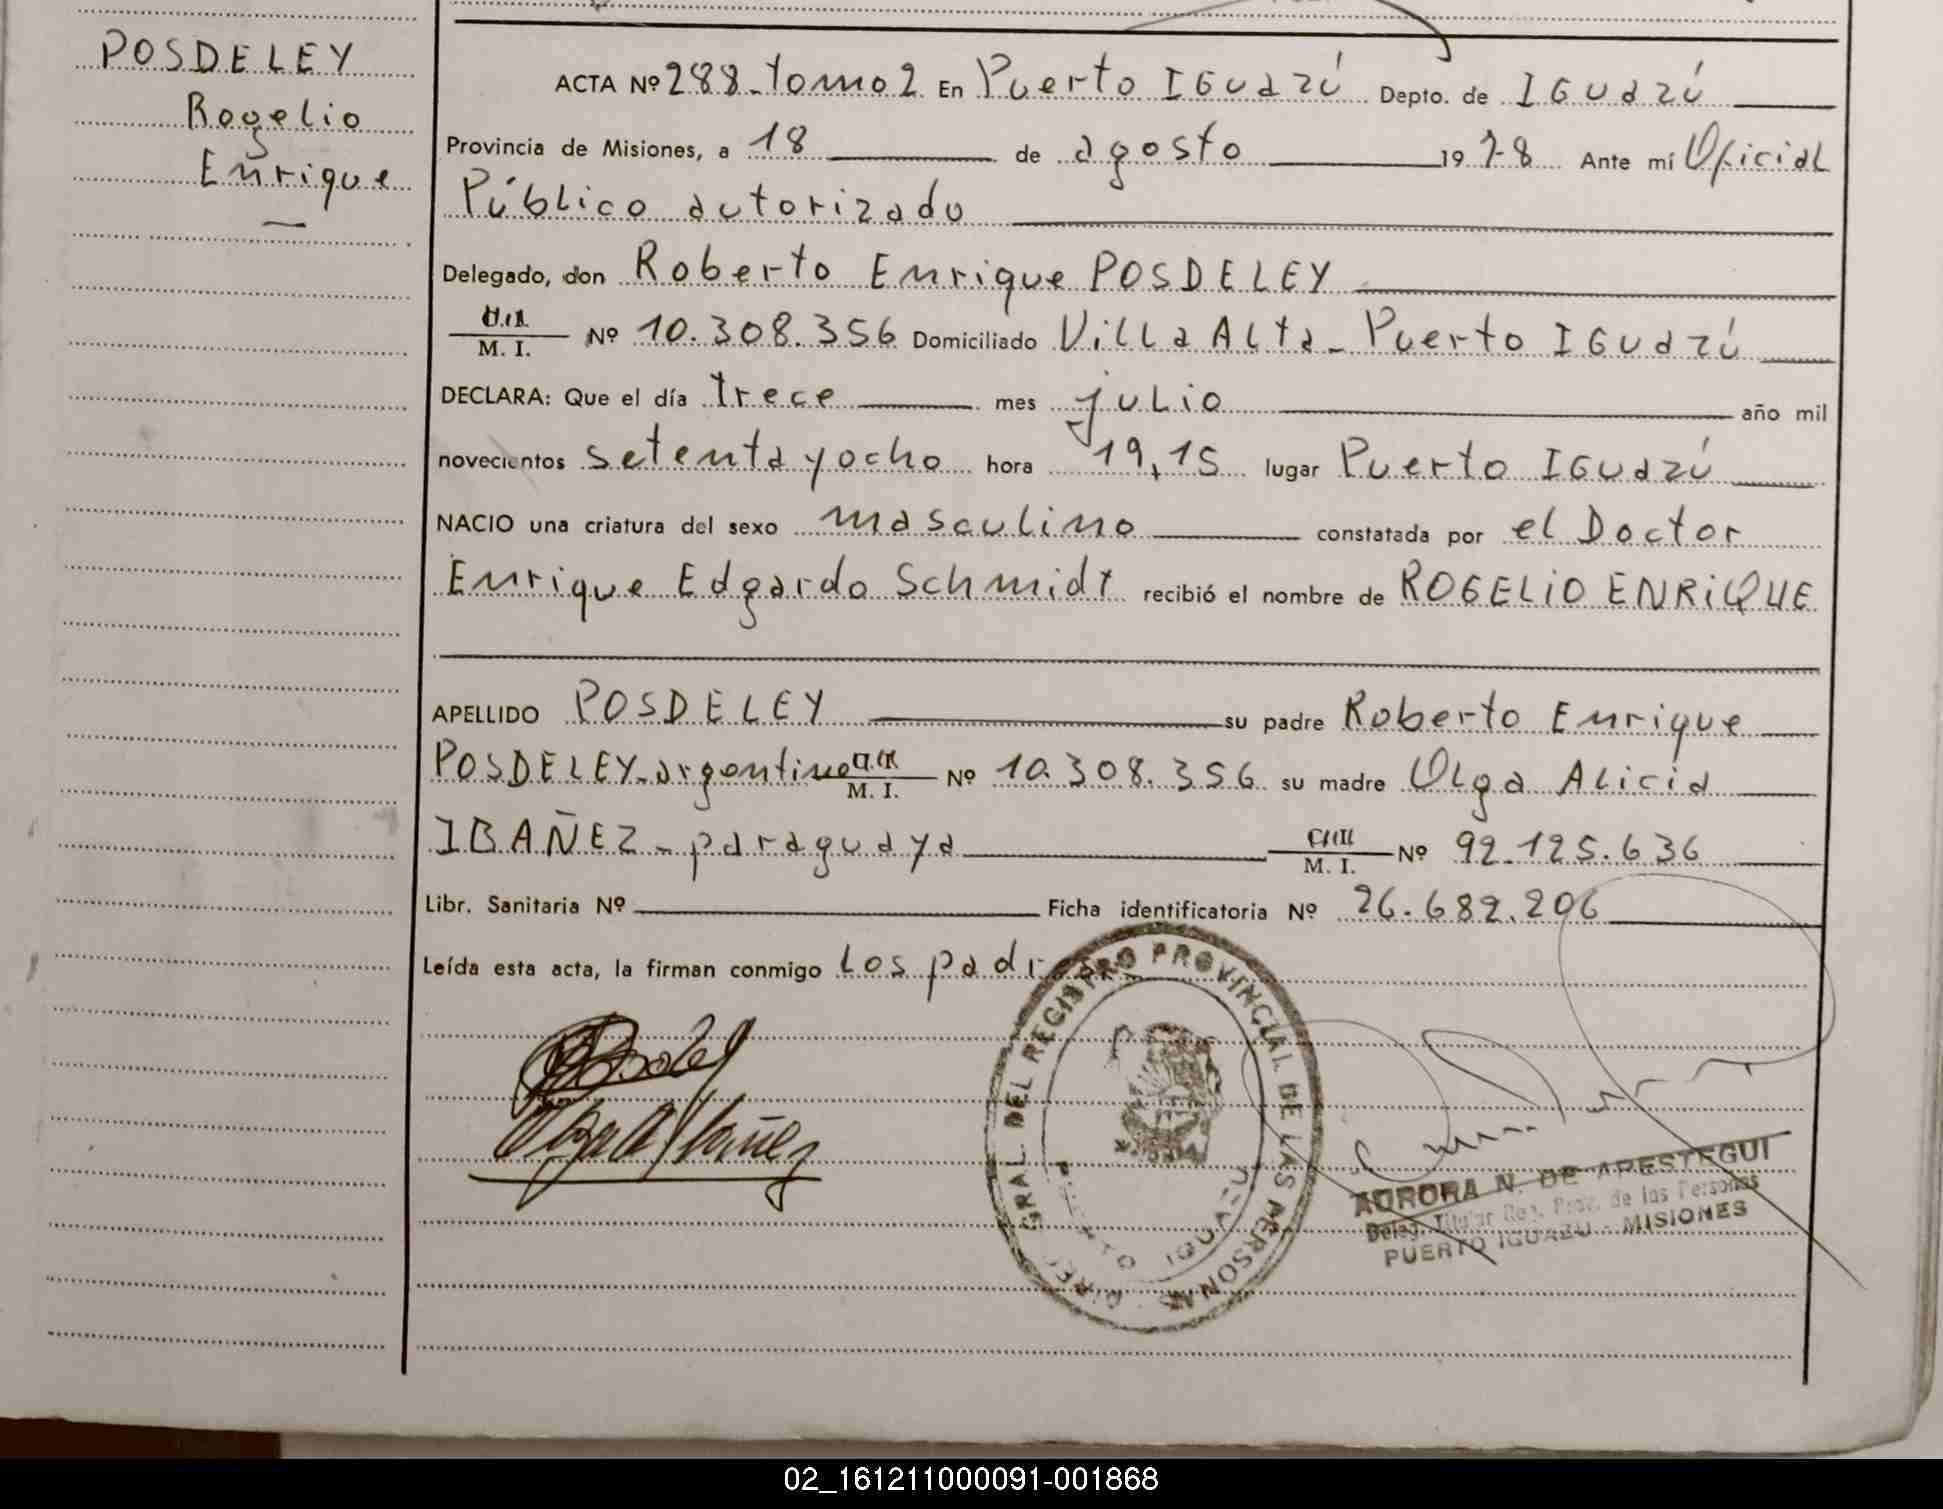 POSDELEY
Rogelio
Enrique
ACTA Nº 288-tomo 2 En Puerto IGuazú Depto. de IGuazú
Provincia de Misiones, a 18 de agosto 1978 Ante mí Oficial
Público autorizado
Delegado, don Roberto Enrique POSDELEY
M. I. Nº 10.308.356 Domiciliado Villa Alta - Puerto IGuazú
DECLARA: Que el día trece mes julio año mil
novecientos setenta y ocho hora 19,15 lugar Puerto IGuazú
NACIO una criatura del sexo masculino constatada por el Doctor
Enrique Edgardo Schmidt recibió el nombre de ROGELIO ENRIQUE
APELLIDO POSDELEY su padre Roberto Enrique
POSDELEY-argentino M. I. Nº 10.308.356 su madre Olga Alicia
IBAÑEZ - paraguaya M. I. Nº 92.125.636
Libr. Sanitaria Nº Ficha identificatoria Nº 26.682.206
Leída esta acta, la firman conmigo los padres
Olga A Ibañez
GRAL. DEL REGISTRO PROVINCIAL DE LAS PERSONAS
PUERTO IGUAZU
AURORA N. DE APESTEGUI
Deleg. Titular Reg. Prov. de las Personas
PUERTO IGUAZU - MISIONES
02_161211000091-001868